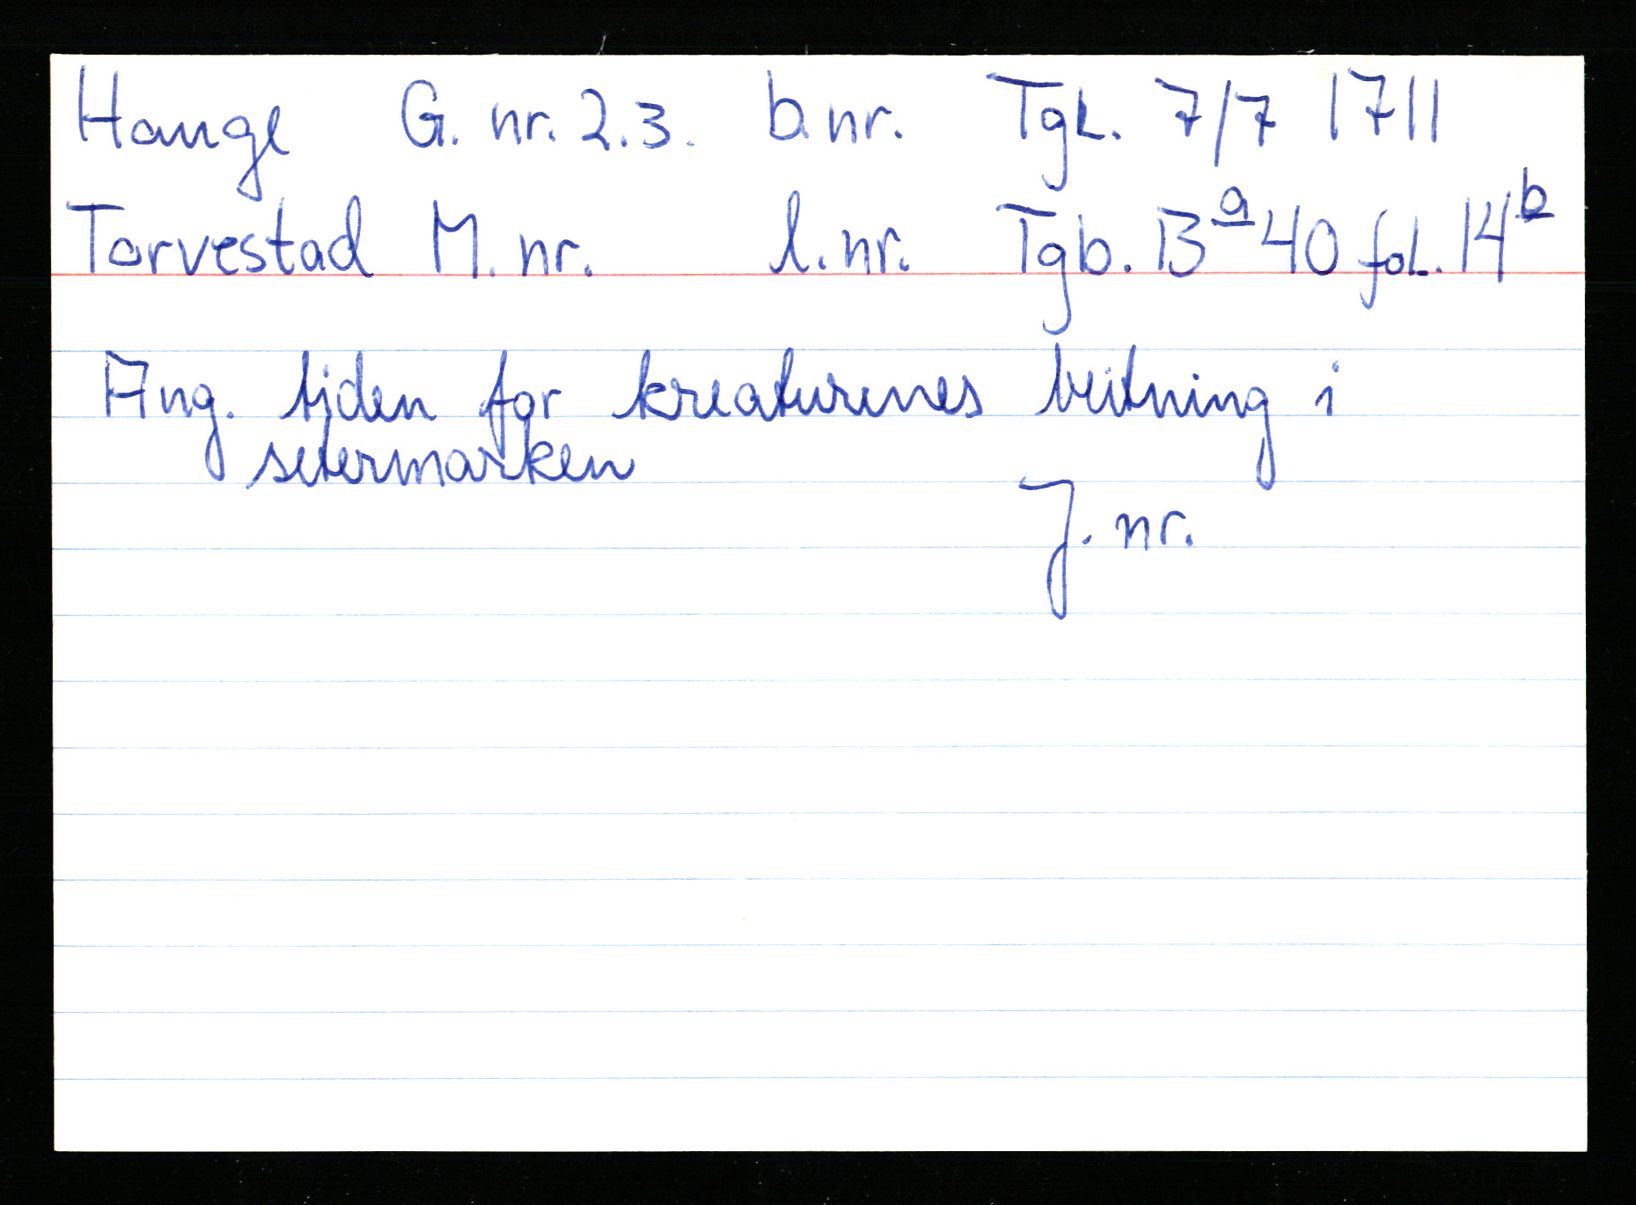 Hauge G. nr. 2.3. b.nr. Tgl. 7/7 1711
Torvestad M. nr. l.nr. Tgb. B a 40 fol. 14 b
Ang. tiden for kreaturenes beitning i
setermarken
J. nr.